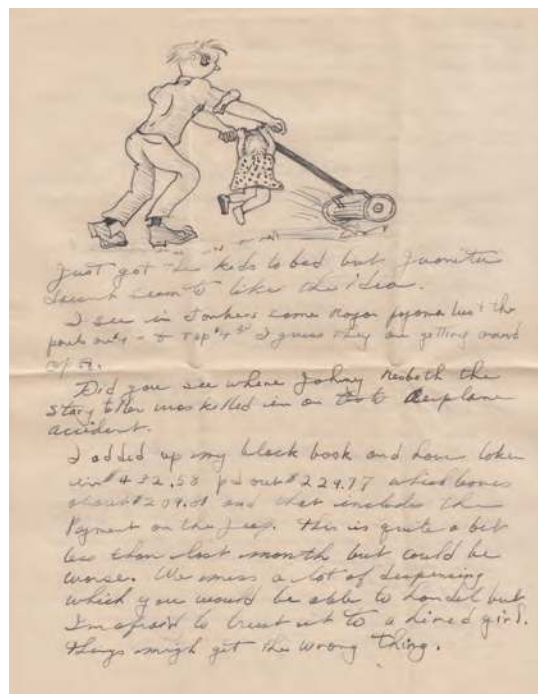 Just got the kids to bed but Juanita
doesnt seem to like the idea.
I see in Yonkers some
pants - & Top I guess they are getting
Did you see where Johny Nesbeth the
story teller was killed in an Aerplane
accident.
I added up my black book and have taken
in $432.58 pd out $229.77 which leaves
about and that include the
Payment on the Jeep. This is quite a bit
less than last month but could be
worse. We miss a lot of despensing
which you would be able to handel but
I'm afraid to trust it to a hired girl.
things migh get the wrong thing.